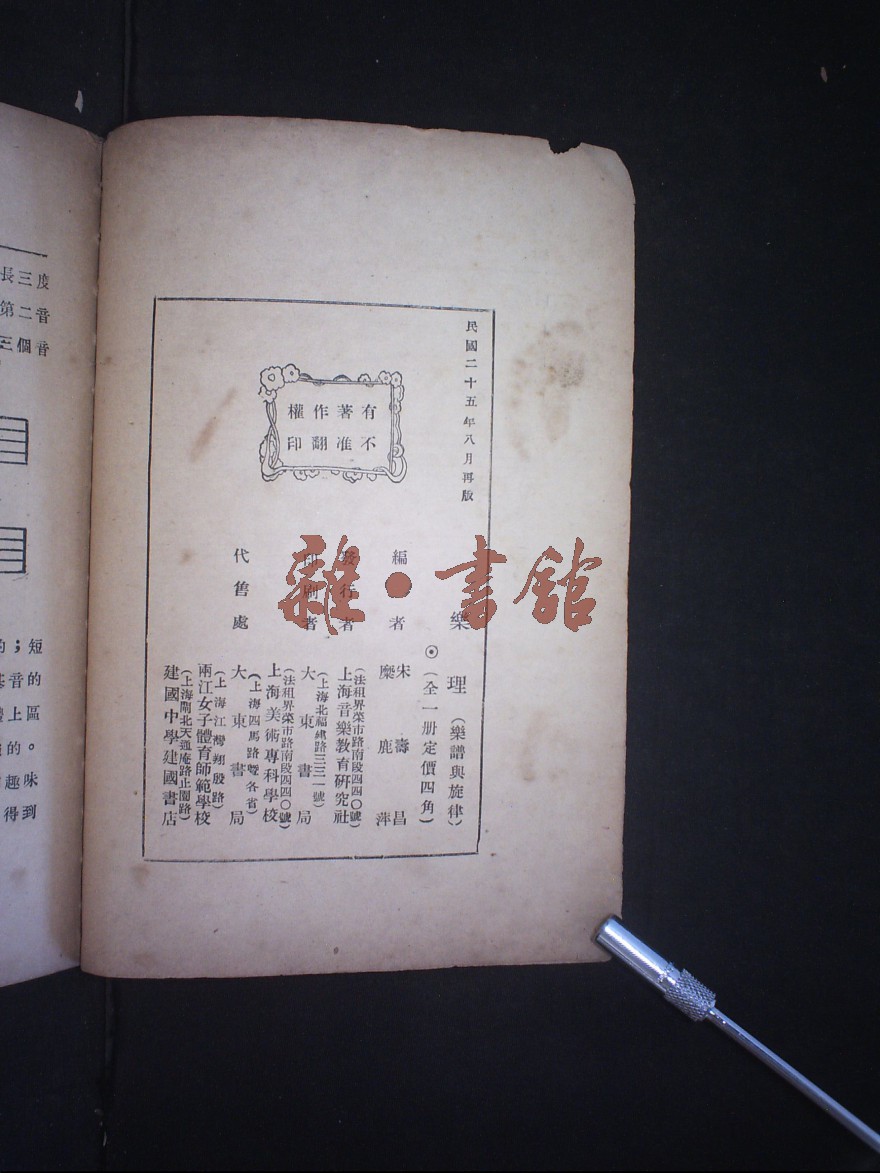 民國二十五年八月再版
有著作權
不准翻印
樂理（樂譜與旋律）
⊙（全一册定價四角）
編者 宋壽昌
麋鹿萍
發行者 上海音樂教育研究社
（法租界菜市路南段四四〇號）
印刷者 大東書局
（上海北福建路三三一號）
代售處 上海美術專科學校
（法租界菜市路南段四四〇號）
大東書局
（上海四馬路暨各省）
兩江女子體育師範學校
（上海江灣翔殷路）
建國中學建國書店
（上海閘北天通庵路止園路）
雜·書館
長三度
第二音
三個音
；短
音的
上區
的。
趣味
得到